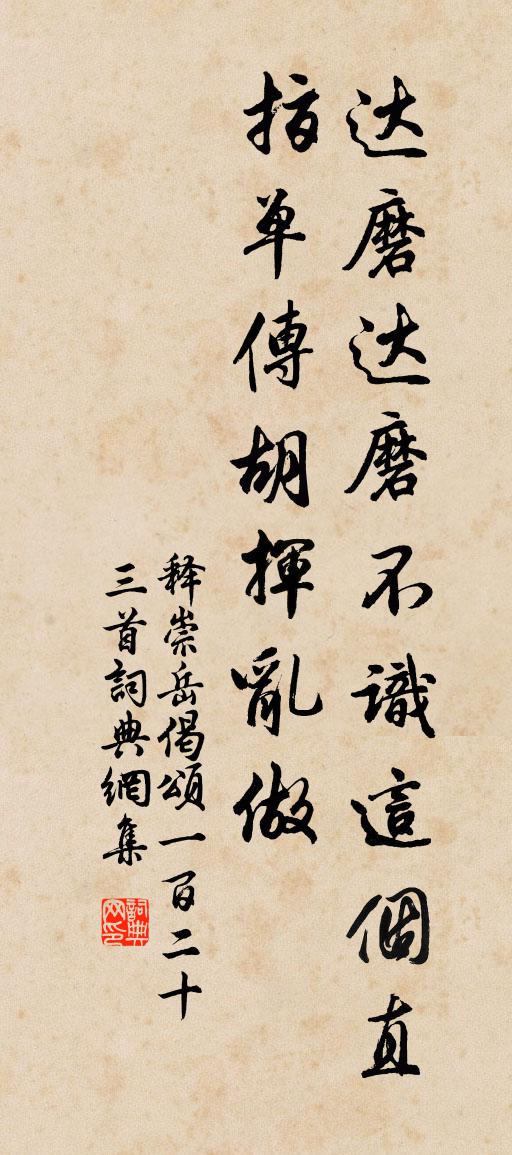 达磨达磨不識這個直
指单傳胡揮亂做
释崇岳偈頌一百二十
三首詞典網集
詞典
网印